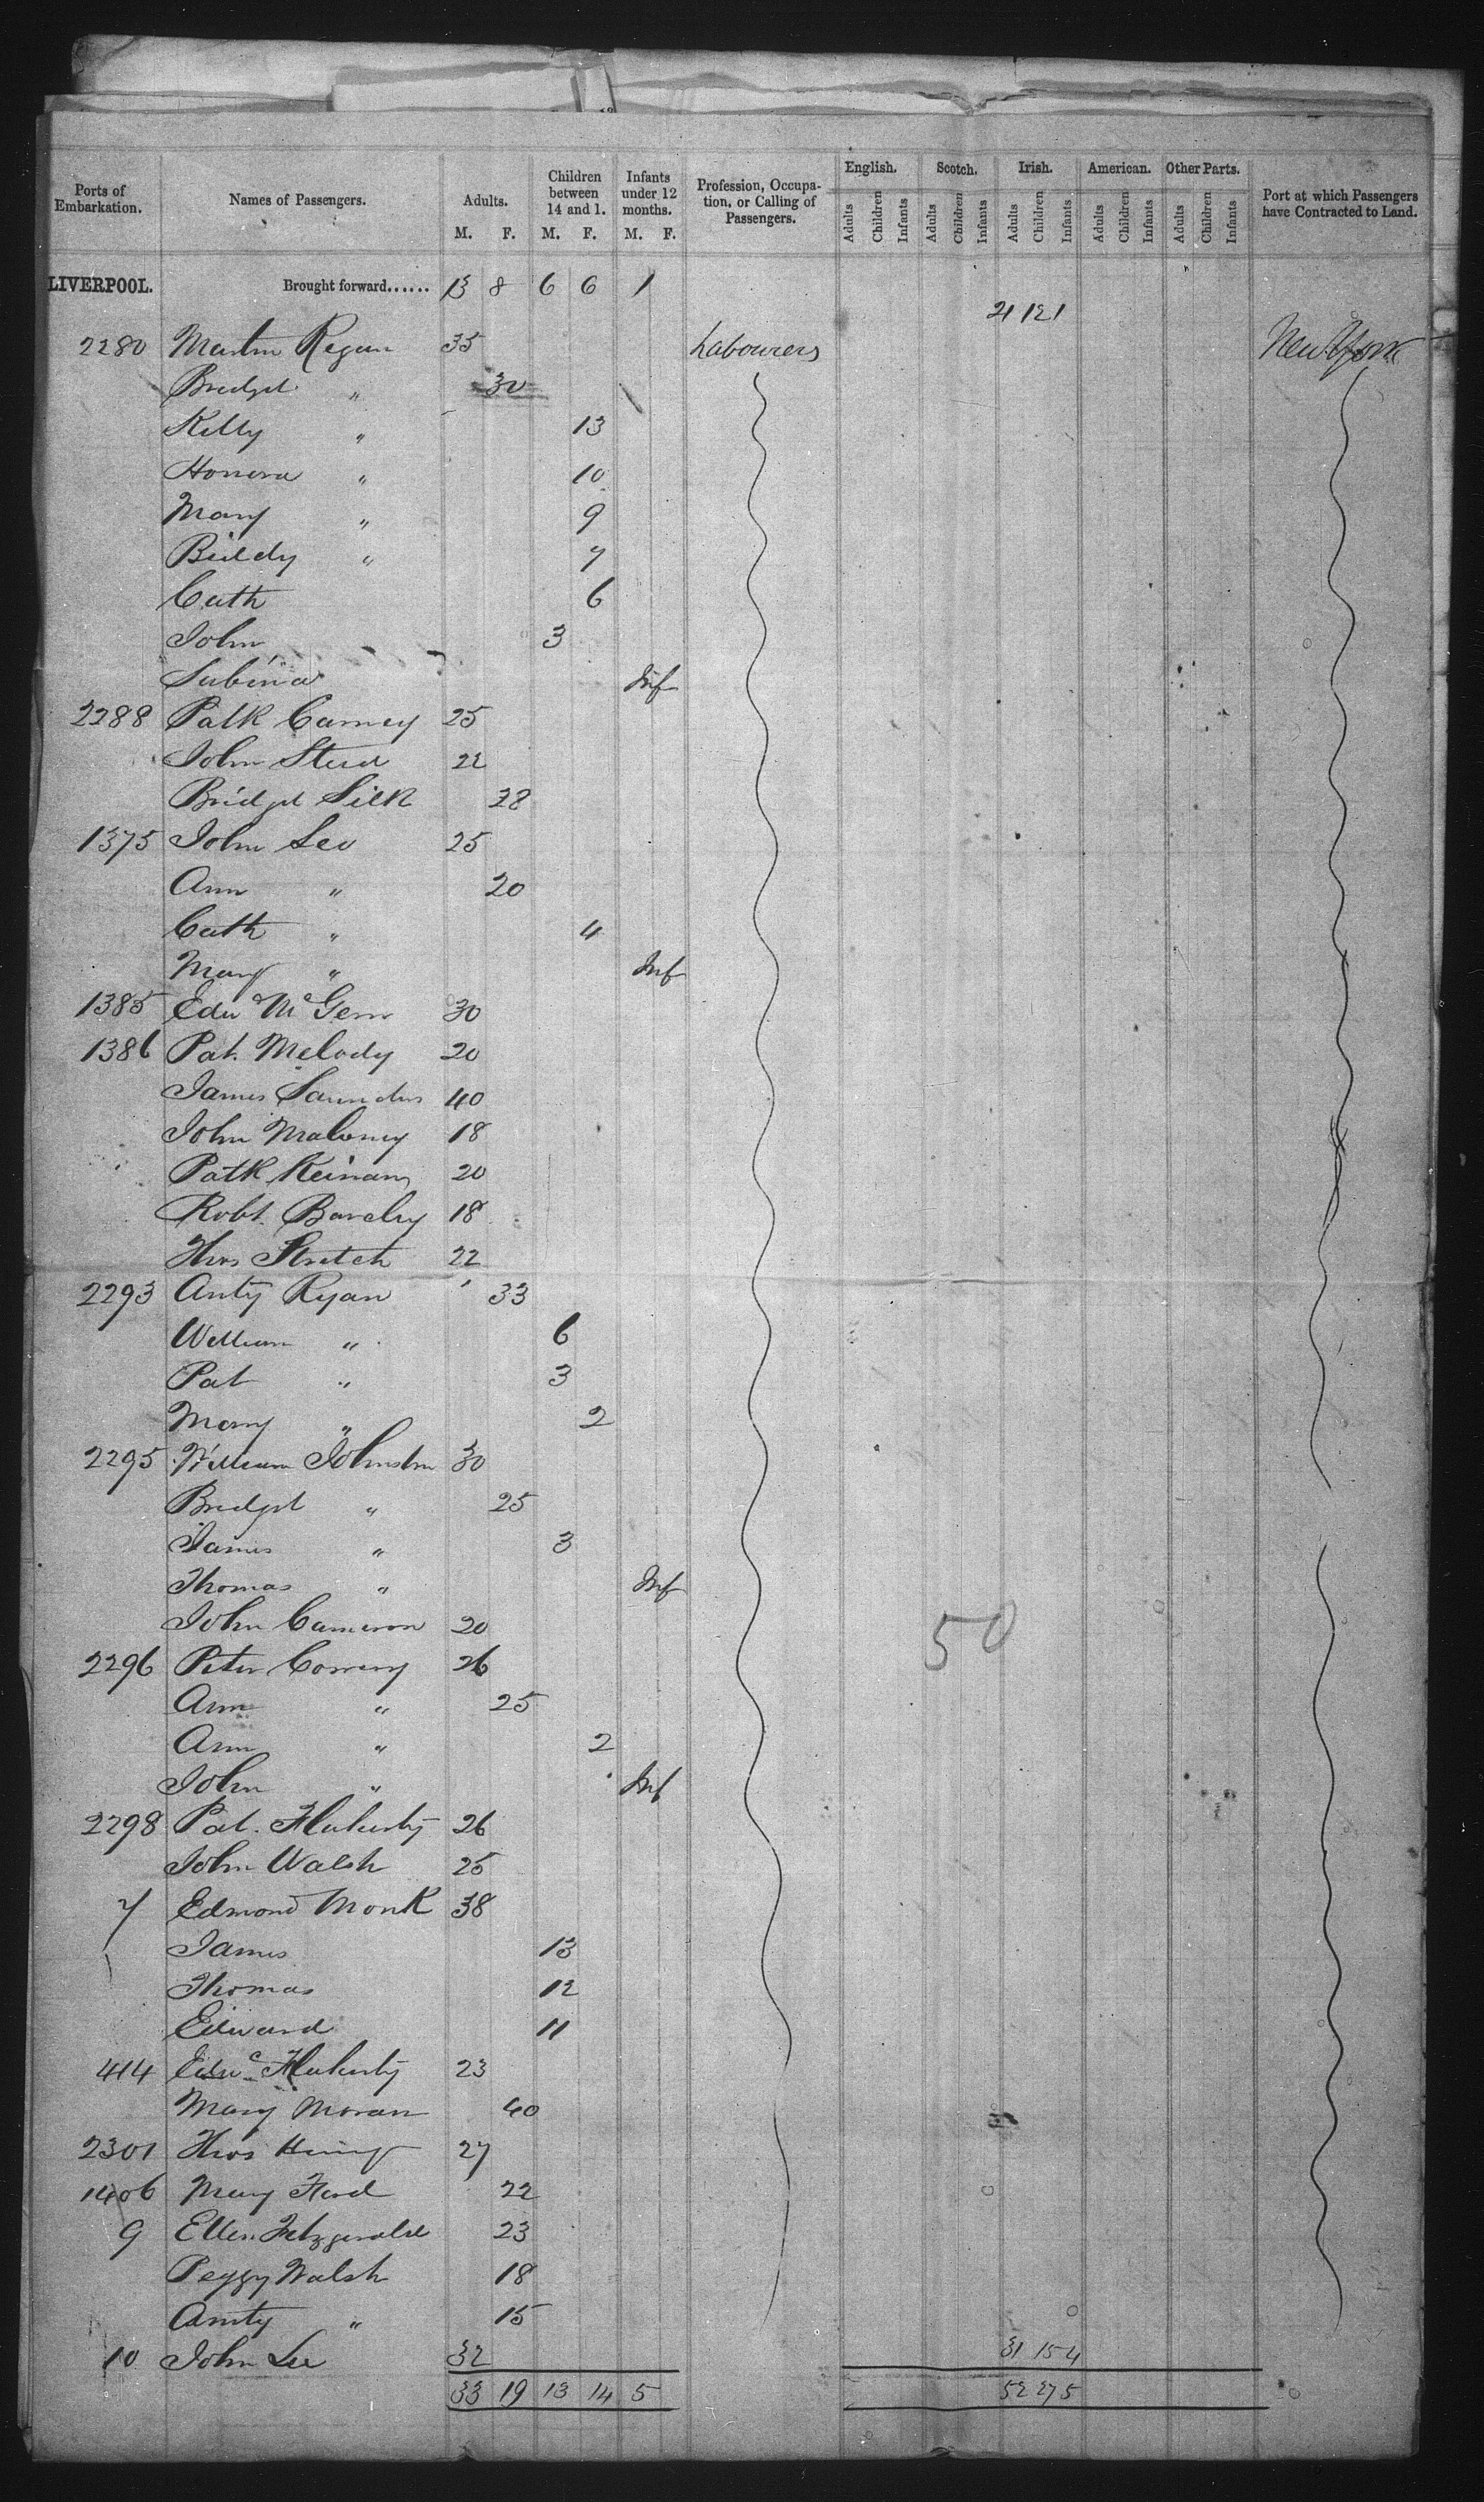 Ports of Embarkation. Names of Passengers. Adults. Children between 14 and 1. Infants under 12 months. Profession, Occupation, or Calling of Passengers. English. Scotch. Irish. American. Other Parts. Port at which Passengers have Contracted to Land.
M. F. M. F. M. F. Adults Children Infants Adults Children Infants Adults Children Infants Adults Children Infants Adults Children Infants
LIVERPOOL. Brought forward...... 13 8 6 6 1
21 12 1
2280 Martin Regan 35 Labourers New York
Bridget " 30
Kitty " 13
Honora " 10
Mary " 9
Biddy " 7
Cath 6
John 3
Sabina Inf
2288 Patk Carney 25
John 22
Bridget Silk 28
1375 John Lee 25
Ann " 20
Cath " 4
Mary " Inf
1385 Edw 30
1386 Pat. Melody 20
James Saunders 40
John Maloney 18
Patk 20
Robt. 18
Thos Stretch 22
2293 Anty Ryan 33
William " 6
Pat " 3
Mary " 2
2295 William Johnston 30
Bridget " 25
James " 3
Thomas " Inf
John Cameron 20
50
2296 Peter 26
Ann " 25
Ann " 2
John " Inf
2298 Pat. Flaherty 26
John Walsh 25
7 Edmond Monk 38
James 13
Thomas 12
Edward 11
414 Flaherty 23
Mary Moran 40
2301 Thos 27
1406 Mary Ford 22
9 Ellen Fitzgerald 23
Peggy Walsh 18
Anity " 15
10 John Lee 32 31 15 4
33 19 13 14 5 52 27 5